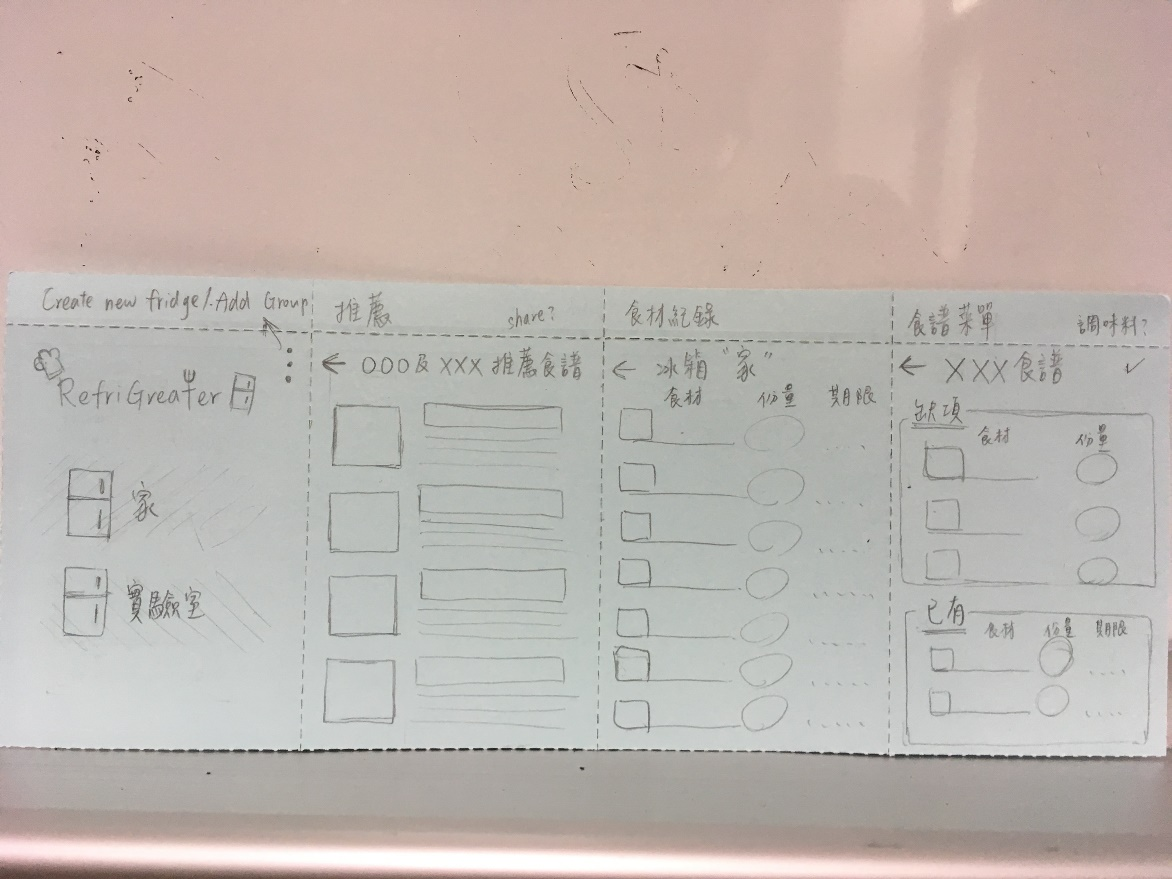 Create new fridge/.Add Group
RefriGreater
家
實驗室
推薦
share?
← OOO及 XXX 推薦食譜
食材紀錄
← 冰箱 "家"
食材 份量 期限
食譜菜單
調味料?
← XXX 食譜 ✓
缺項
食材 份量
已有
食材 份量 期限